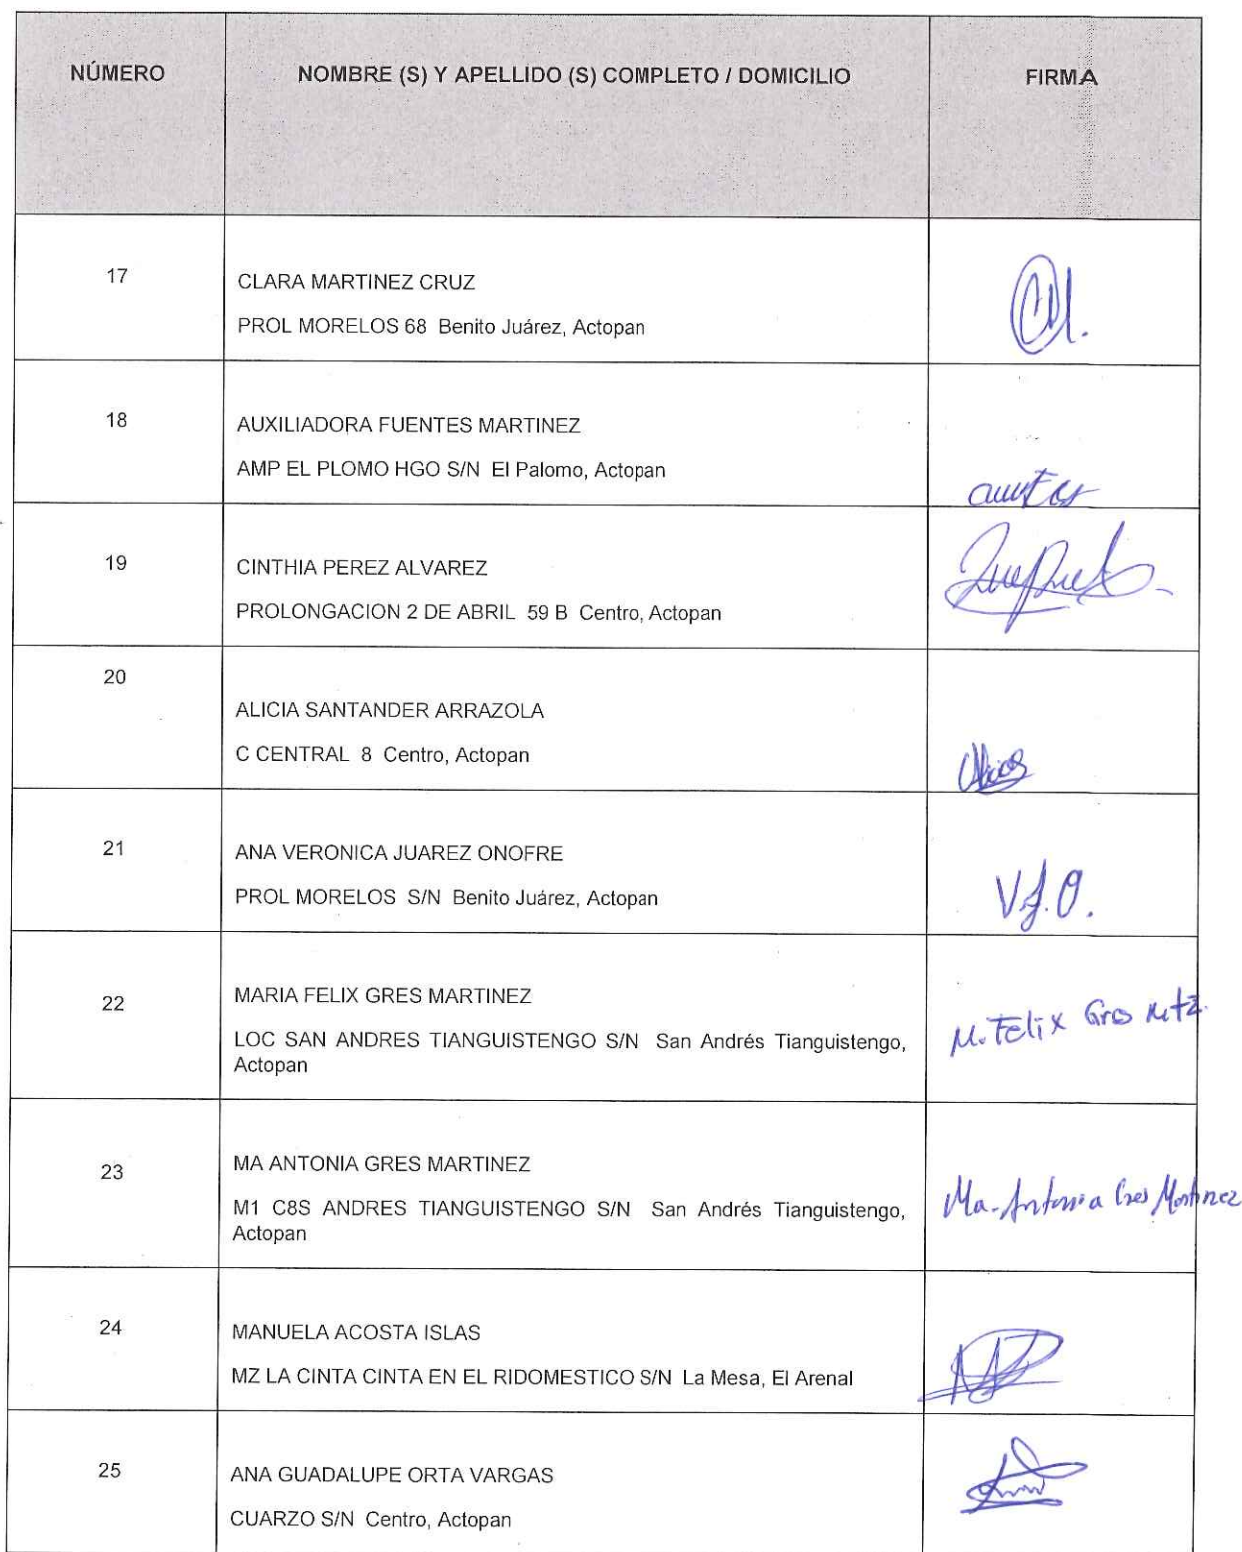 NÚMERO NOMBRE (S) Y APELLIDO (S) COMPLETO / DOMICILIO FIRMA
17
CLARA MARTINEZ CRUZ
PROL MORELOS 68 Benito Juárez, Actopan
18
AUXILIADORA FUENTES MARTINEZ
AMP EL PLOMO HGO S/N El Palomo, Actopan
19
CINTHIA PEREZ ALVAREZ
PROLONGACION 2 DE ABRIL 59 B Centro, Actopan
20
ALICIA SANTANDER ARRAZOLA
C CENTRAL 8 Centro, Actopan
21
ANA VERONICA JUAREZ ONOFRE
PROL MORELOS S/N Benito Juárez, Actopan
V.J.O.
22
MARIA FELIX GRES MARTINEZ
LOC SAN ANDRES TIANGUISTENGO S/N San Andrés Tianguistengo,
Actopan
M. Felix Gres Mtz.
23
MA ANTONIA GRES MARTINEZ
M1 C8S ANDRES TIANGUISTENGO S/N San Andrés Tianguistengo,
Actopan
Ma. Antonia Gres Martinez
24
MANUELA ACOSTA ISLAS
MZ LA CINTA CINTA EN EL RIDOMESTICO S/N La Mesa, El Arenal
25
ANA GUADALUPE ORTA VARGAS
CUARZO S/N Centro, Actopan